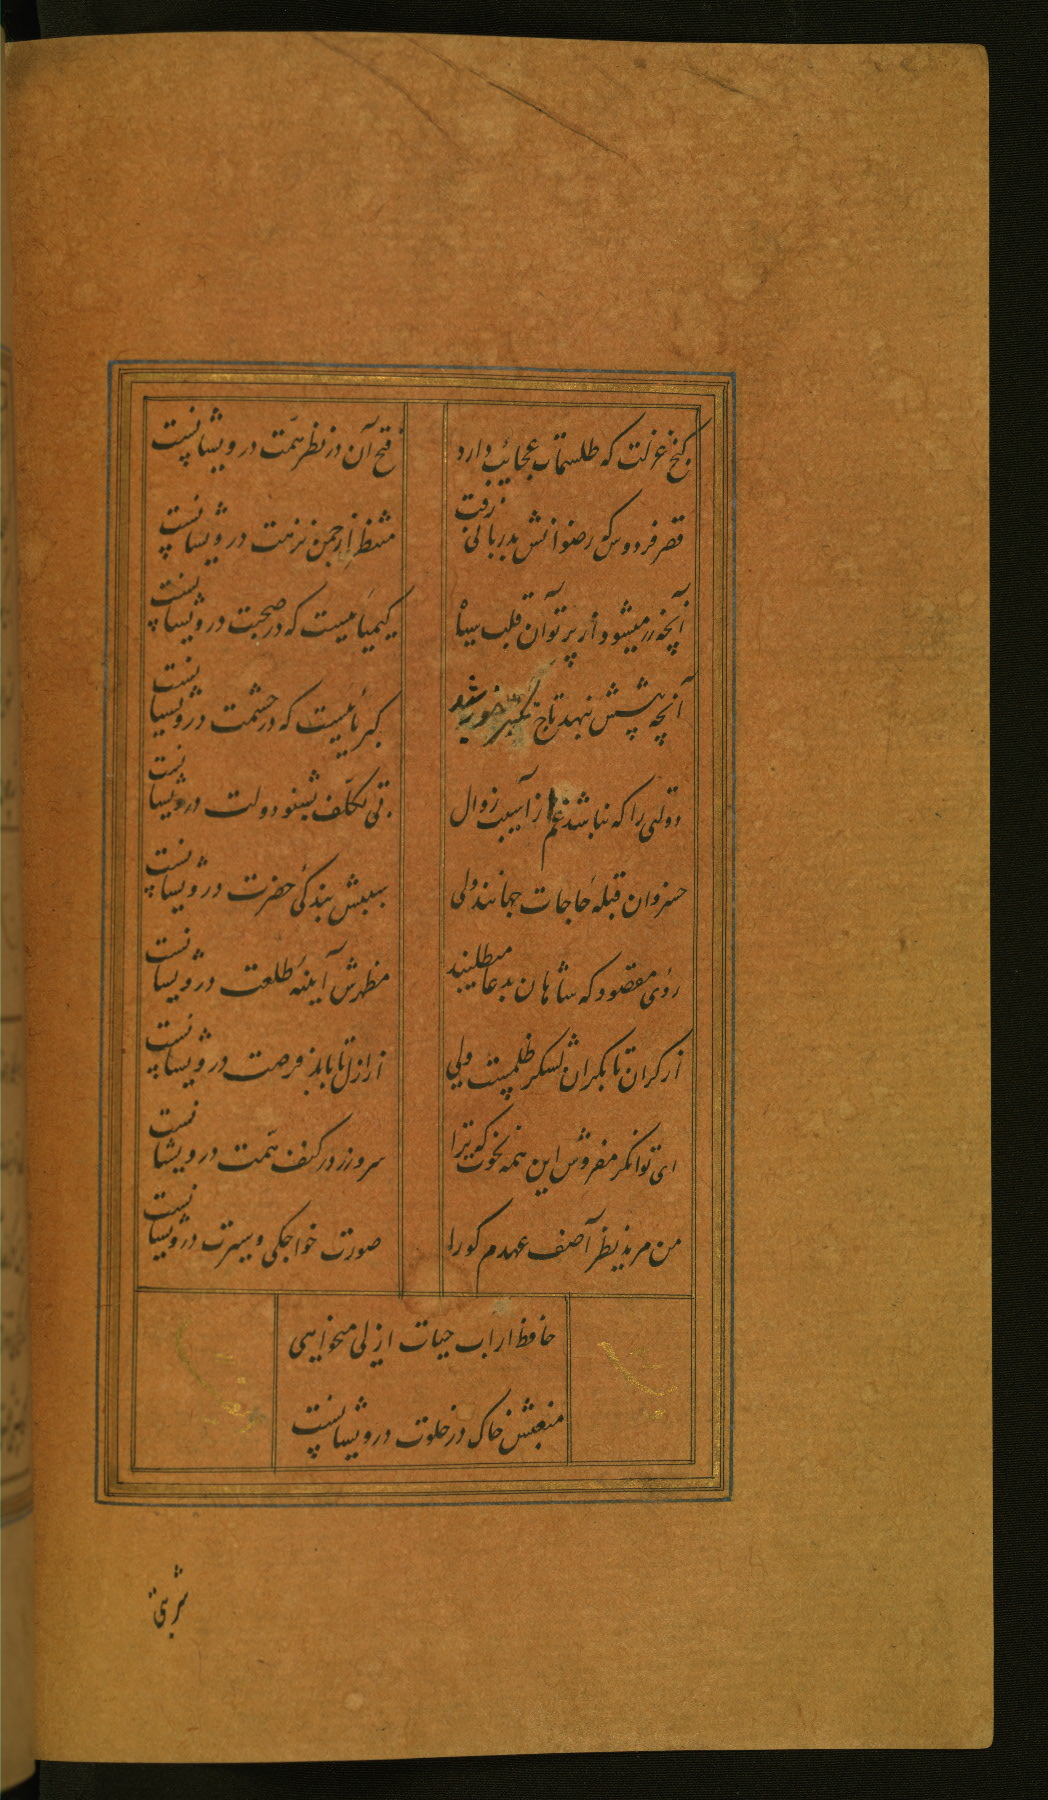 گنج عزلت که طلسمات عجائب دارد
فتح آن در نظر همّت درویشانست
قصر فردوس که رضوانش بدربانی رفت
منظر از چمن نزهت درویشانست
آنچه زر میشود از پرتو آن قلب سیاه
کیمیائیست که در صحبت درویشانست
آنچه پیشش بنهد تاج تکبر خورشید
کبریائیست که در حشمت درویشانست
دولتی را که نباشد غم از آسیب زوال
بی تکلّف بشنو دولت درویشانست
خسروان قبلهٔ حاجات جهانند ولی
سببش بندگی حضرت درویشانست
روی مقصود که شاهان بدعا میطلبند
مظهرش آینهٔ طلعت درویشانست
از کران تا بکران لشکر ظلمست ولی
از ازل تا بابد فرصت درویشانست
ای توانگر مفروش این همه نخوت که ترا
سر و زر در کنف همّت درویشانست
من مرید نظر آصف عهدم کو را
صورت خواجگی و سیرت درویشانست
حافظ ار آب حیات ازلی میخواهی
منبعش خاک در خلوت درویشانست
شربتی